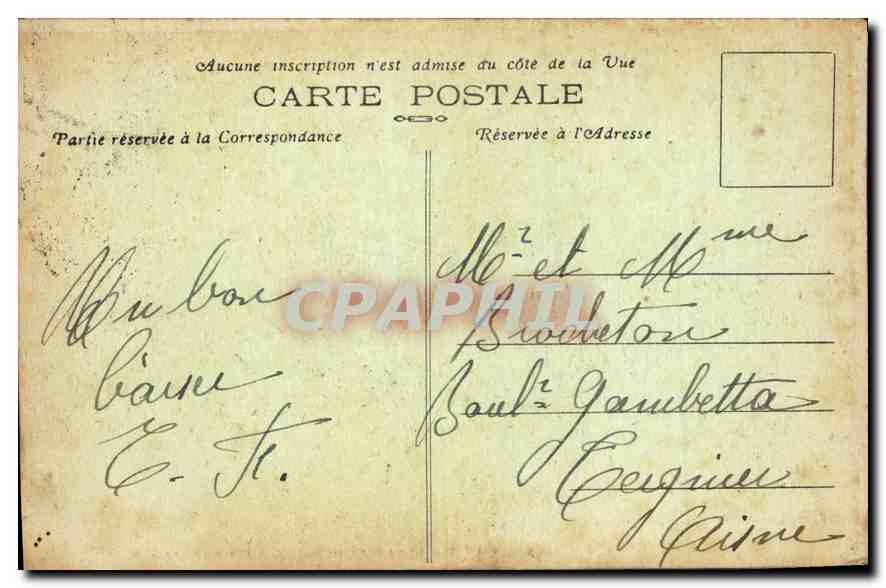 Aucune inscription n'est admise du côté de la Vue
CARTE POSTALE
Partie réservée à la Correspondance
Réservée à l'Adresse
Un bon
baiser
E. H.
Mr et Mme
Brocheton
Boulr Gambetta
Tergnier
Aisne
CPAPHIL